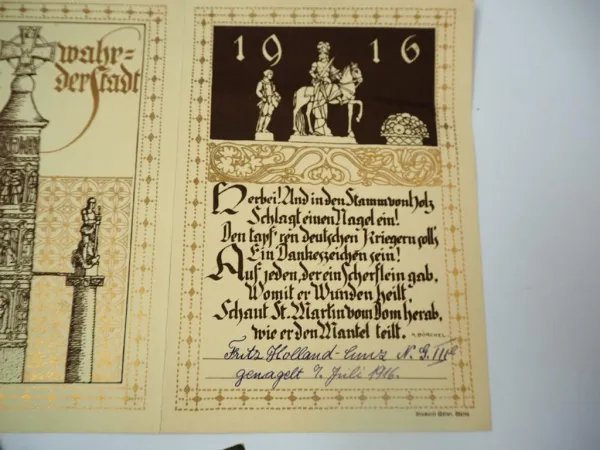 wahr=
der Stadt
1916
Herbei! Und in den Stamm von Holz
Schlagt einen Nagel ein!
Den tapf'ren deutschen Kriegern soll's
Ein Dankeszeichen sein!
Auf jeden, der ein Scherflein gab,
Womit er Wunden heilt,
Schaut St. Martin vom Dom herab,
wie er den Mantel teilt.
Fritz Holland-Cunz N. G. III
genagelt 7. Juli 1916.